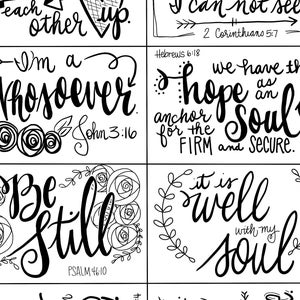 each
other up.
I can not see
2 Corinthians 5:7
I'm a
Whosoever.
John 3:16
Hebrews 6:18
we have th
hope as
an
anchor
for the Soul
FIRM and SECURE.
Be
Still
PSALM 46:10
it is
well
with my
soul